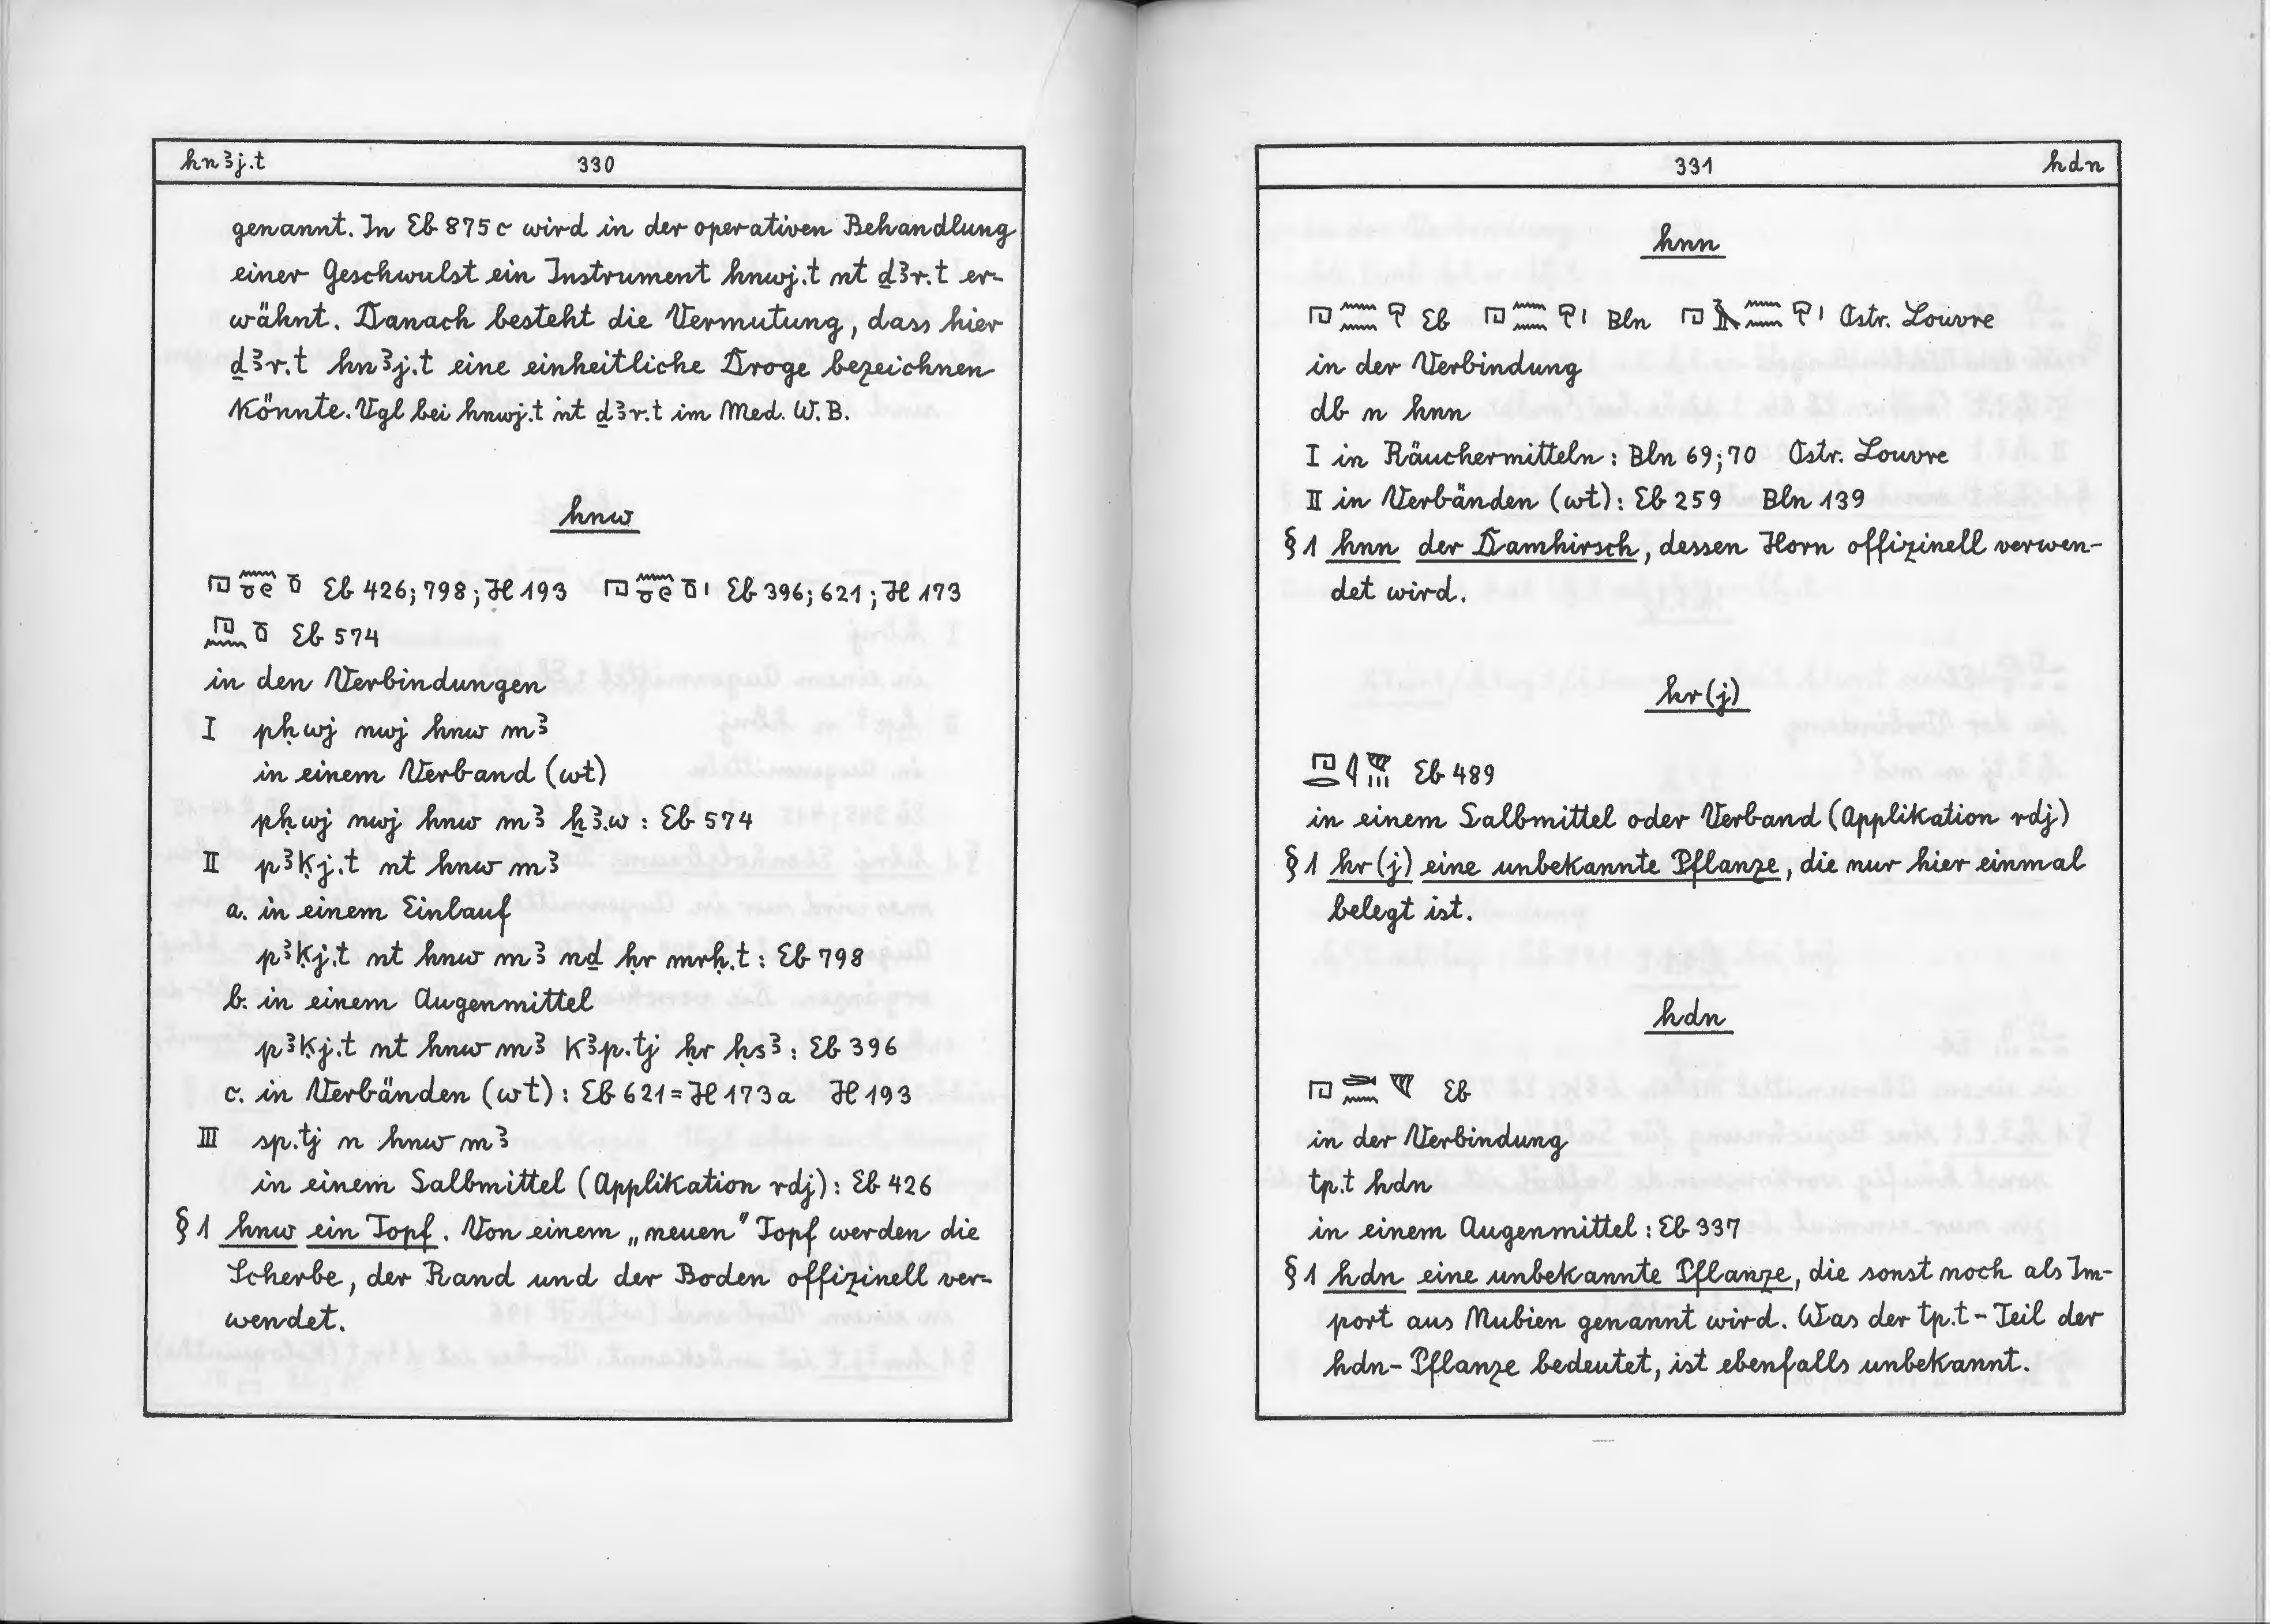 hnꜣj.t 330
genannt. In Eb 875c wird in der operativen Behandlung
einer Geschwulst ein Instrument hnwj.t nt ḏꜣr.t er-
wähnt. Danach besteht die Vermutung, dass hier
ḏꜣr.t hnꜣj.t eine einheitliche Droge bezeichnen
könnte. Vgl bei hnwj.t nt ḏꜣr.t im Med. W. B.
hnw
Eb 426; 798; H 193 Eb 396; 621; H 173
Eb 574
in den Verbindungen
I pḥwj nwj hnw mꜣ
in einem Verband (wt)
pḥwj nwj hnw mꜣ ẖꜣ.w : Eb 574
II pꜣḳj.t nt hnw mꜣ
a. in einem Einlauf
pꜣḳj.t nt hnw mꜣ nḏ ḥr mrḥ.t : Eb 798
b. in einem Augenmittel
pꜣḳj.t nt hnw mꜣ kꜣp.tj ḥr ḥsꜣ : Eb 396
c. in Verbänden (wt) : Eb 621 = H 173a H 193
III sp.tj n hnw mꜣ
in einem Salbmittel (Applikation rdj) : Eb 426
§ 1 hnw ein Topf. Von einem „neuen" Topf werden die
Scherbe, der Rand und der Boden offizinell ver-
wendet.
331 hdn
hnn
Eb Bln Ostr. Louvre
in der Verbindung
db n hnn
I in Räuchermitteln : Bln 69; 70 Ostr. Louvre
II in Verbänden (wt) : Eb 259 Bln 139
§ 1 hnn der Damhirsch, dessen Horn offizinell verwen-
det wird.
hr(j)
Eb 489
in einem Salbmittel oder Verband (Applikation rdj)
§ 1 hr(j) eine unbekannte Pflanze, die nur hier einmal
belegt ist.
hdn
Eb
in der Verbindung
tp.t hdn
in einem Augenmittel : Eb 337
§ 1 hdn eine unbekannte Pflanze, die sonst noch als Im-
port aus Nubien genannt wird. Was der tp.t - Teil der
hdn - Pflanze bedeutet, ist ebenfalls unbekannt.